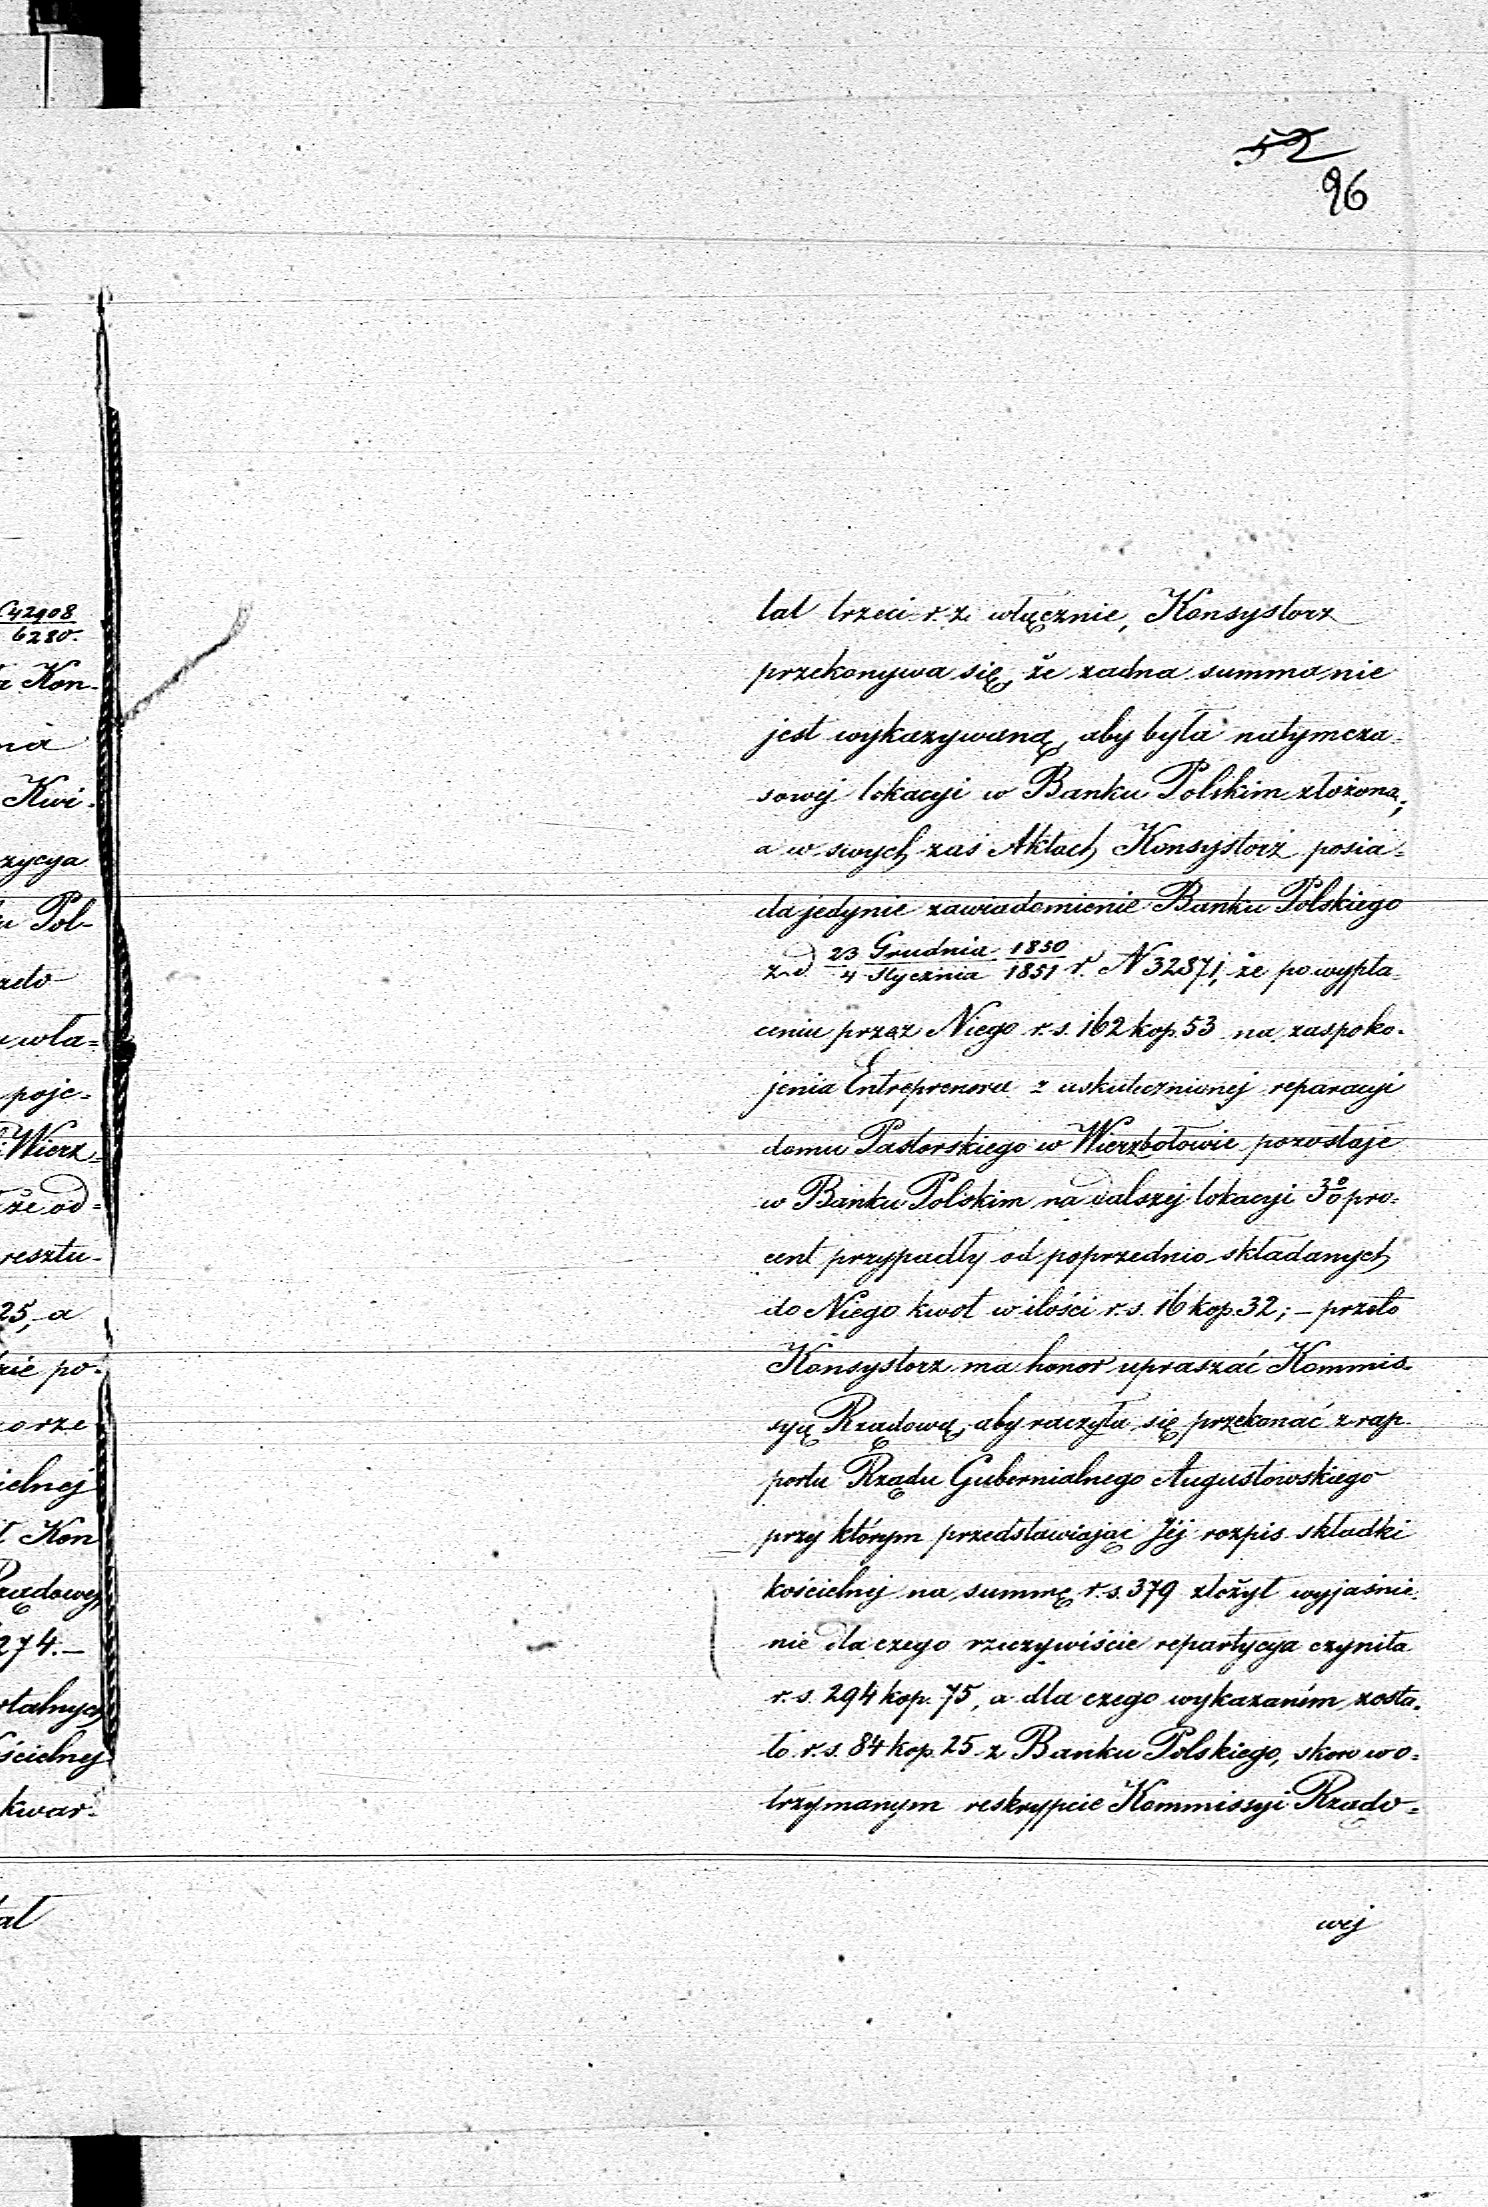 52
96
42908
6280.
Kon-
Kwi-
zycya
Pol-
wła=
poje=
Wierz=
że od=
resztu-
25, a
po-
orze
ielnej
Kon
Rządowej
274.—
rtalnych
ścielnej
kwar-
tal
tał trzeci r. z. włącznie, Konsystorz
przekonywa się, że żadna summa nie
jest wykazywaną, aby była natymcza-
sowej lokacyi w Banku Polskim złożona;
a w swych zaś Aktach Konsystorz posia=
da jedynie zawiadomienie Banku Polskiego
z d. 23 Grudnia 1850 / 4 Stycznia 1851 r. N 32871, że po wypła-
ceniu przez Niego r. s. 162 kop. 53 na zaspoko-
jenia Entreprenera z uskutecznionej reparacyi
domu Pastorskiego w Wierzbołowie pozostaje
w Banku Polskim na dalszej lokacyi 3% pro-
cent przypadły od poprzednio składanych
do Niego kwot w ilości r. s. 16 kop. 32; – przeto
Konsystorz ma honor upraszać Kommis-
syę Rządową, aby raczyła się przekonać z rap-
portu Rządu Gubernialnego Augustowskiego
przy którym przedstawiając Jéj rozpis składki
kościelnej na summę r. s. 379 złożył wyjaśnie-
nie dla czego rzeczywiście repartycya czyniła
r. s. 294 kop. 75, a dla czego wykazaném zosta-
ło r. s. 84 kop. 25 z Banku Polskiego, skoro w o=
trzymanym reskrypcie Kommissyi Rządo=
wéj